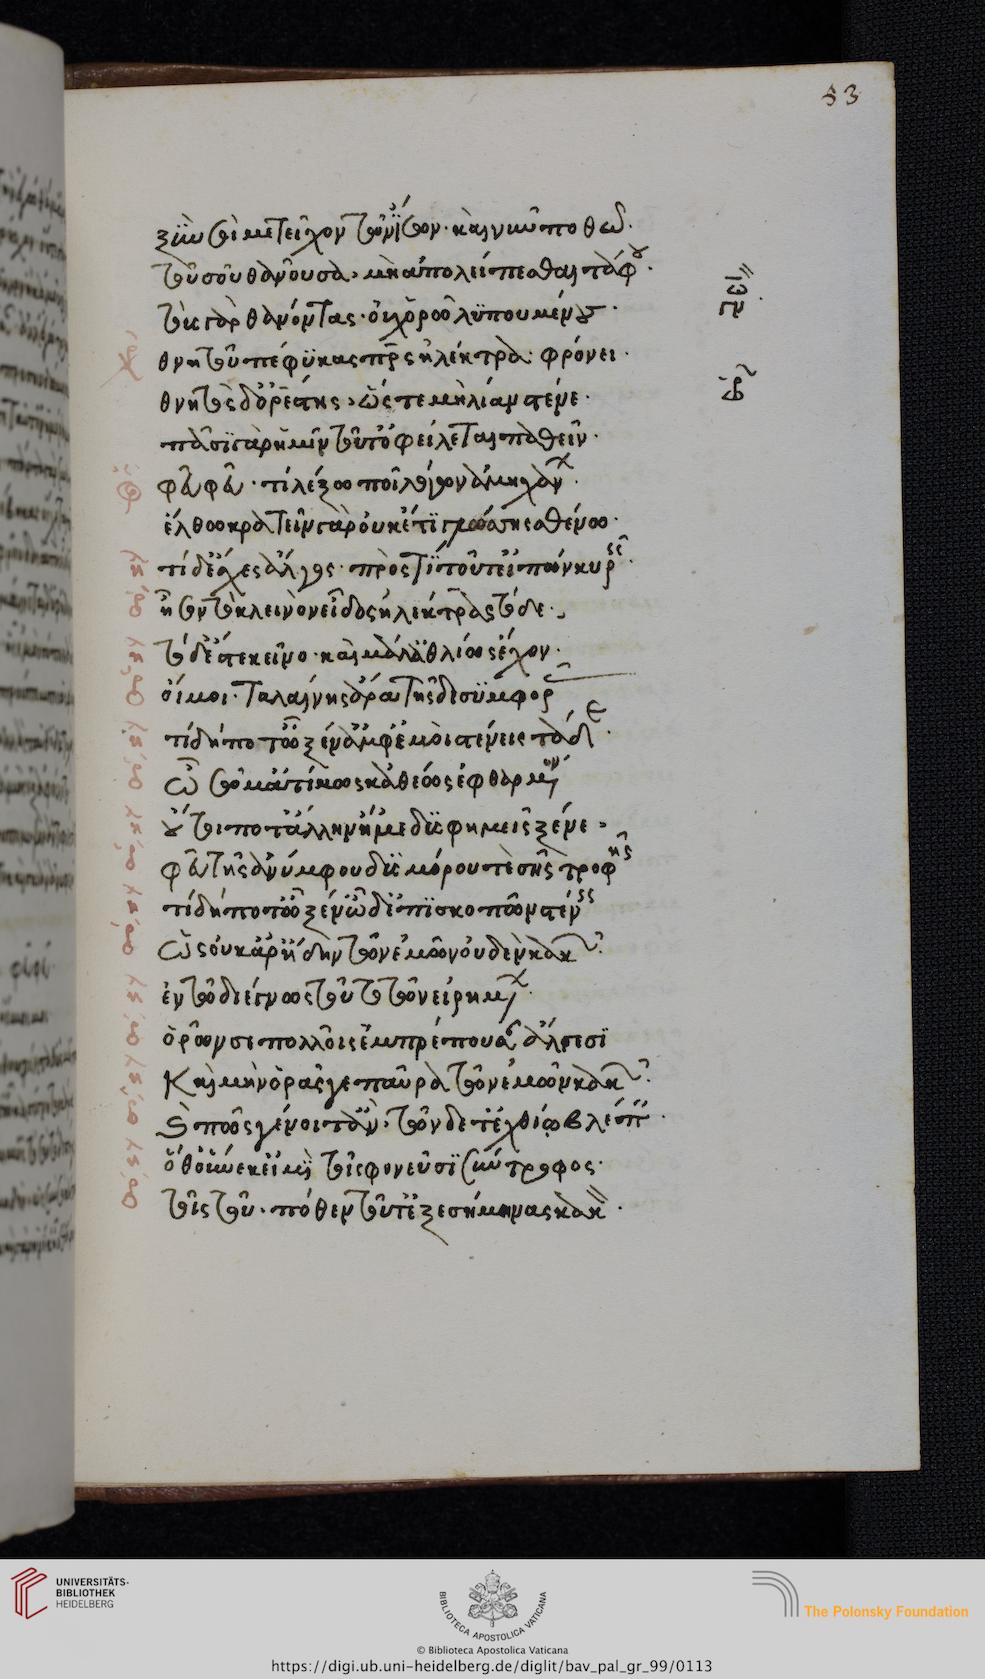 53
ξὺν σοὶ μετεῖχον τῶν ἴσων· καὶ νῦν ποθῶ
τοῦ σοῦ θανοῦσα, μὴ ἀπολείπεσθαι τάφου·
τοὺς γὰρ θανόντας οὐχ ὁρῶ λυπουμένους·
θνητοῦ πέφυκας πρς ἠλέκτρα· φρόνει·
θνητὸς δ' ὀρέστης, ὥστε μὴ λίαν στένε·
πᾶσιν γὰρ ἡμῖν τοῦτ' ὀφείλεται παθεῖν·
φεῦ φεῦ· τί λέξω ποῖ λόγων ἀμηχαν
ἔλθω κρατεῖν γὰρ οὐκέτι γλώσσης σθένω·
τί δ' ἔσχες ἄλγος· πρὸς τί τοῦτ' εἰπὼν κυρεῖς·
ἦ σὸν τὸ κλεινὸν εἶδος ἠλέκτρας τόδε·
τόδ' ἔστ' ἐκεῖνο· καὶ μάλ' ἀθλίως ἔχον·
οἴμοι· ταλαίνης ἄρα τῆσδε συμφορ
τί δήποτ' ὦ ξέν' ἀμφ' ἐμοὶ στένεις τάδε·
ὦ σῶμ' ἀτίμως κἀθέως ἐφθαρμένον
οὔτοι ποτ' ἄλλην ἢ 'μὲ δυσφημεῖς ξένε·
φεῦ τῆς ἀνύμφου δυσμόρου τε σῆς τροφῆς
τί δήποτ' ὦ ξέν' ὧδ' ἐπισκοπῶν στένεις
ὡς οὐκ ἄρ' ᾔδην τῶν ἐμῶν οὐδὲν κακῶν
ἐν τῷ διέγνως τοῦτο τῶν εἰρημένων·
ὁρῶν σε πολλοῖς ἐμπρέπουσαν ἄλγεσι
Καὶ μὴν ὁρᾷς γε παῦρα τῶν ἐμῶν κακῶν
Καὶ πῶς γένοιτ' ἂν τῶνδέ τ' ἐχθίω βλέπειν·
ὁθούνεκ' εἰμὶ τοῖς φονεῦσι σύντροφος·
τοῖς τοῦ· πόθεν τοῦτ' ἐξεσήμηνας κακόν·
UNIVERSITÄTS-
BIBLIOTHEK
HEIDELBERG
BIBLIOTECA APOSTOLICA VATICANA
The Polonsky Foundation
© Biblioteca Apostolica Vaticana
https://digi.ub.uni-heidelberg.de/diglit/bav_pal_gr_99/0113